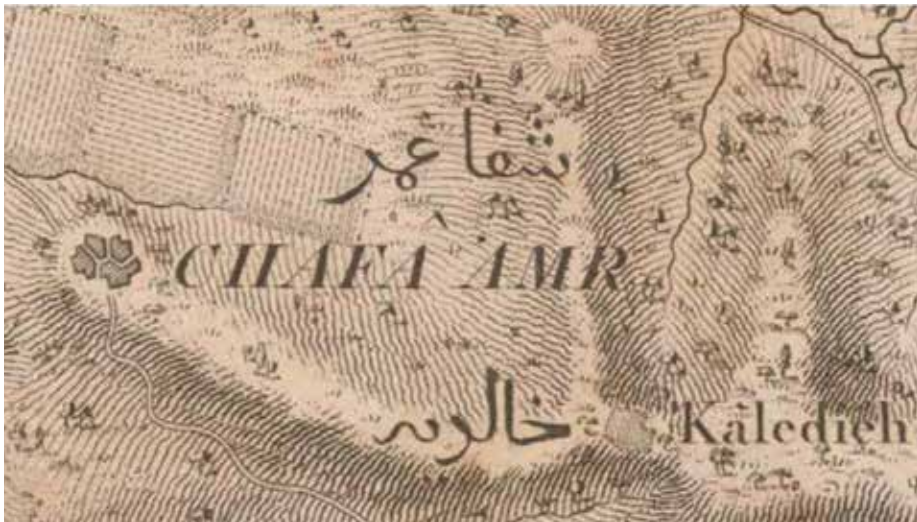 شفا عمر
CHAFA 'AMR
خالديه Kàledieh